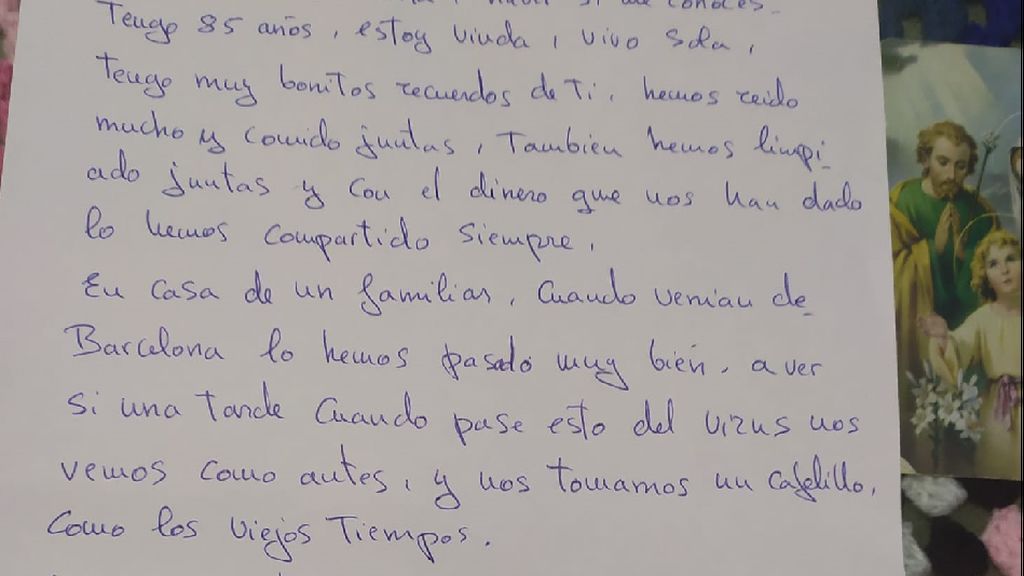 a ver si me conoces.
Tengo 85 años, estoy viuda, vivo sola,
tengo muy bonitos recuerdos de Ti, hemos reido
mucho y comido juntas, También hemos limpi
ado juntas y con el dinero que nos han dado
lo hemos compartido siempre.
En casa de un familiar, Cuando venian de
Barcelona lo hemos pasado muy bien. a ver
si una Tarde Cuando pase esto del virus nos
vemos como antes, y nos tomamos un cafelillo,
Como los viejos Tiempos.